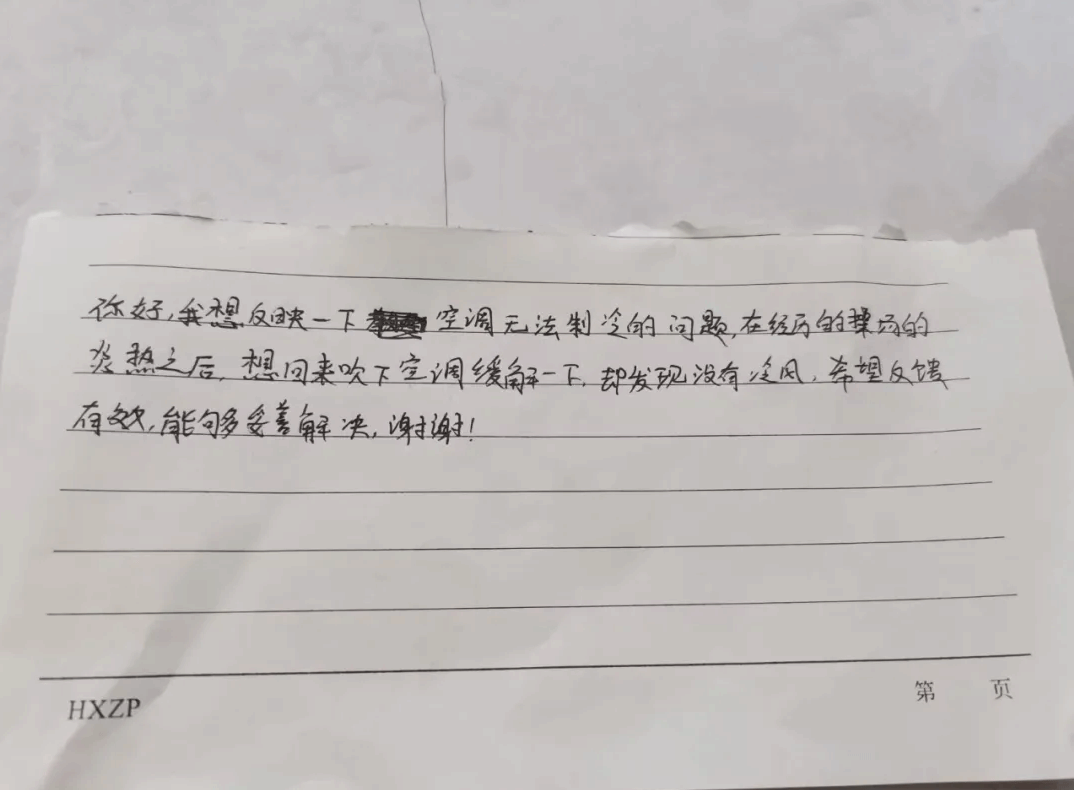 你好,我想反映一下空调无法制冷的问题,在经历的操场的
炎热之后,想回来吹下空调缓解一下,却发现没有冷风,希望反馈
有效,能够妥善解决,谢谢!
HXZP
第 页